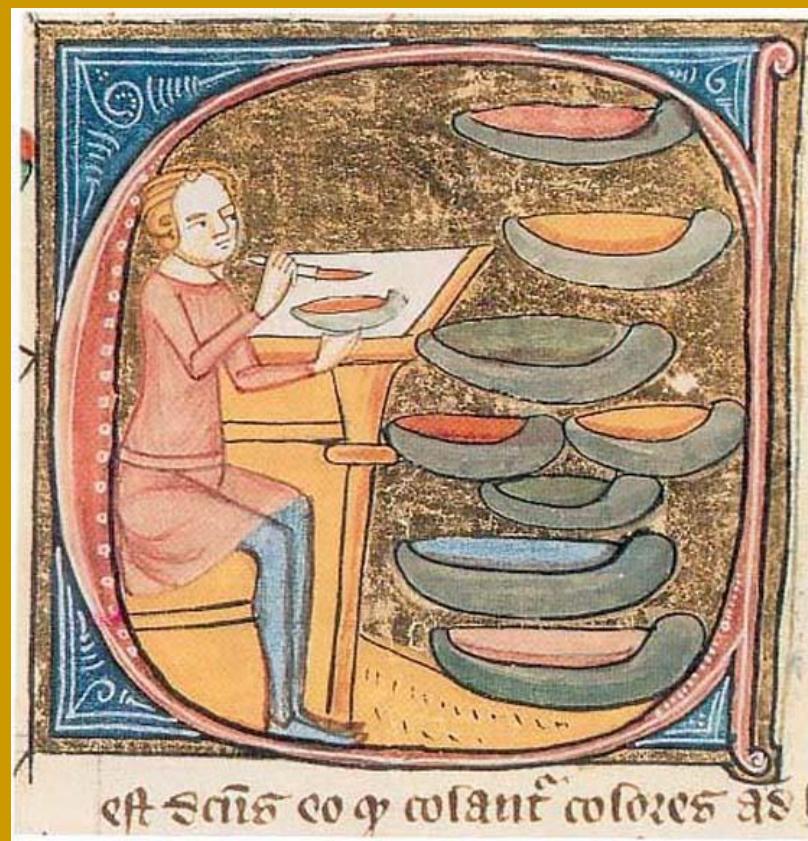 est dcūs eo ꝙ colantᷣ colores ad